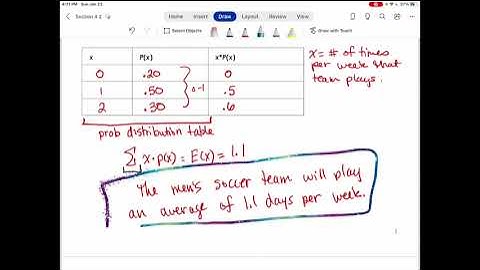 4:11 PM Sun Jan 23
Section 4.2
Home Insert Draw Layout Review
Select Objects
Draw with Touch
x P(x) x*P(x)
0 .20 0
1 .50 .5
2 .30 .6
0-1
x = # of times
per week that
team plays.
prob distribution table
∑ x·p(x) = E(x) = 1.1
The men's soccer team will play
an average of 1.1 days per week.